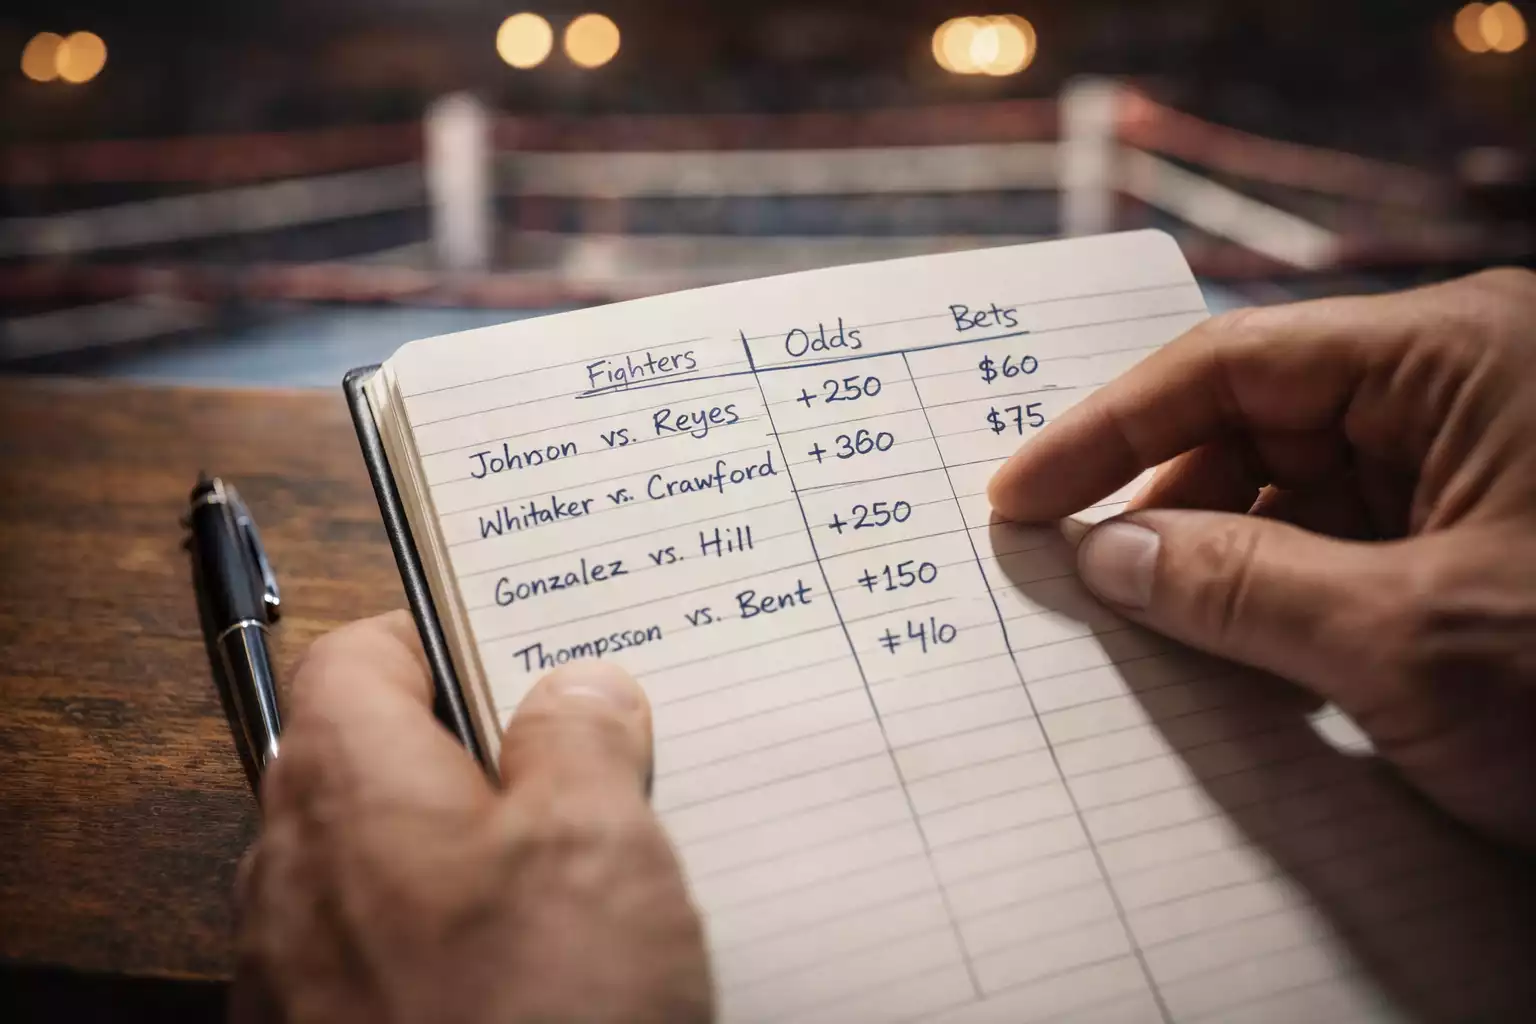 Fighters Odds Bets
Johnson vs. Reyes +250 $60
Whitaker vs. Crawford +360 $75
Gonzalez vs. Hill +250
Thompsson vs. Bent +150
+410